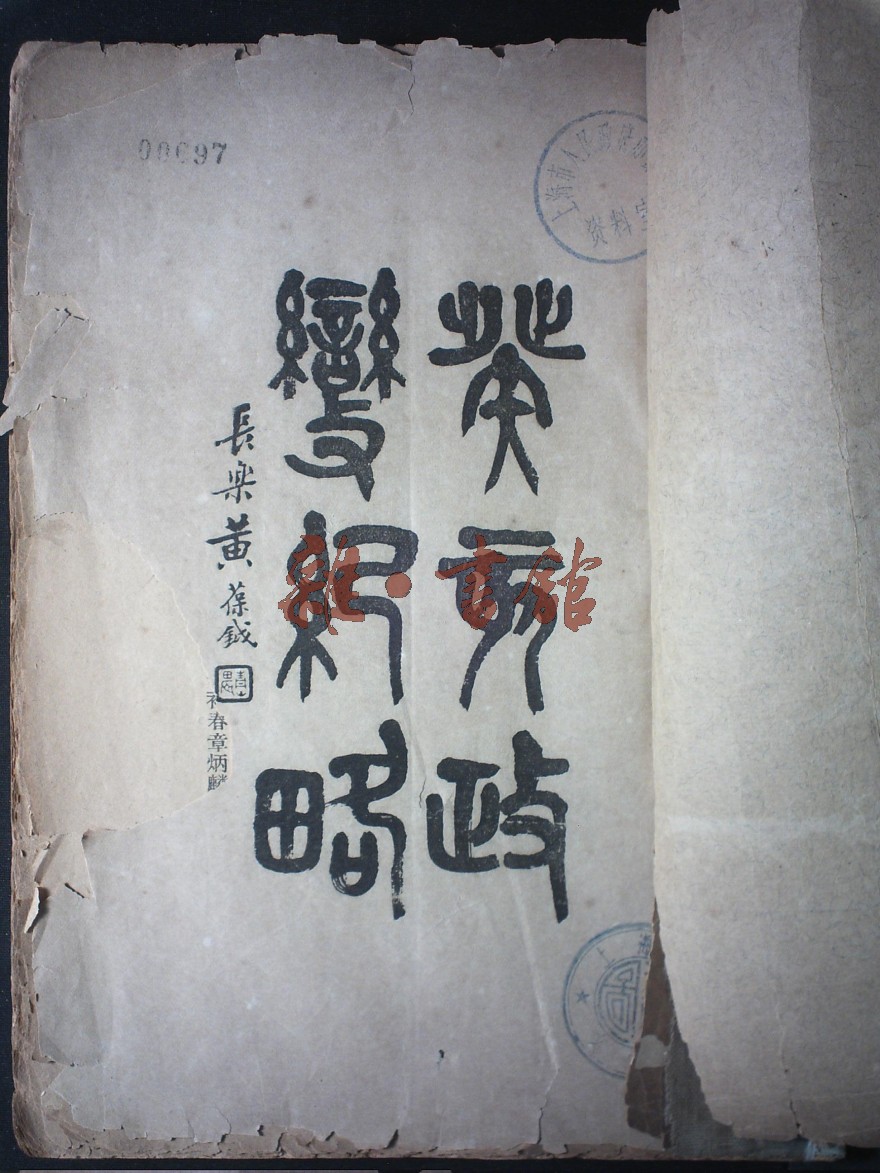 00697
上海市人民
资料室
癸亥政
變紀略
長樂黃葆鉞
春章炳麟
雜·書館